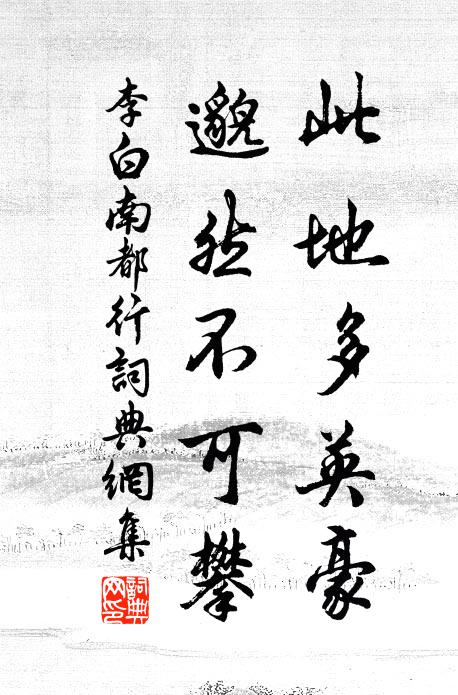 此地多英豪
邈然不可攀
李白南都行詞典網集
詞典网印